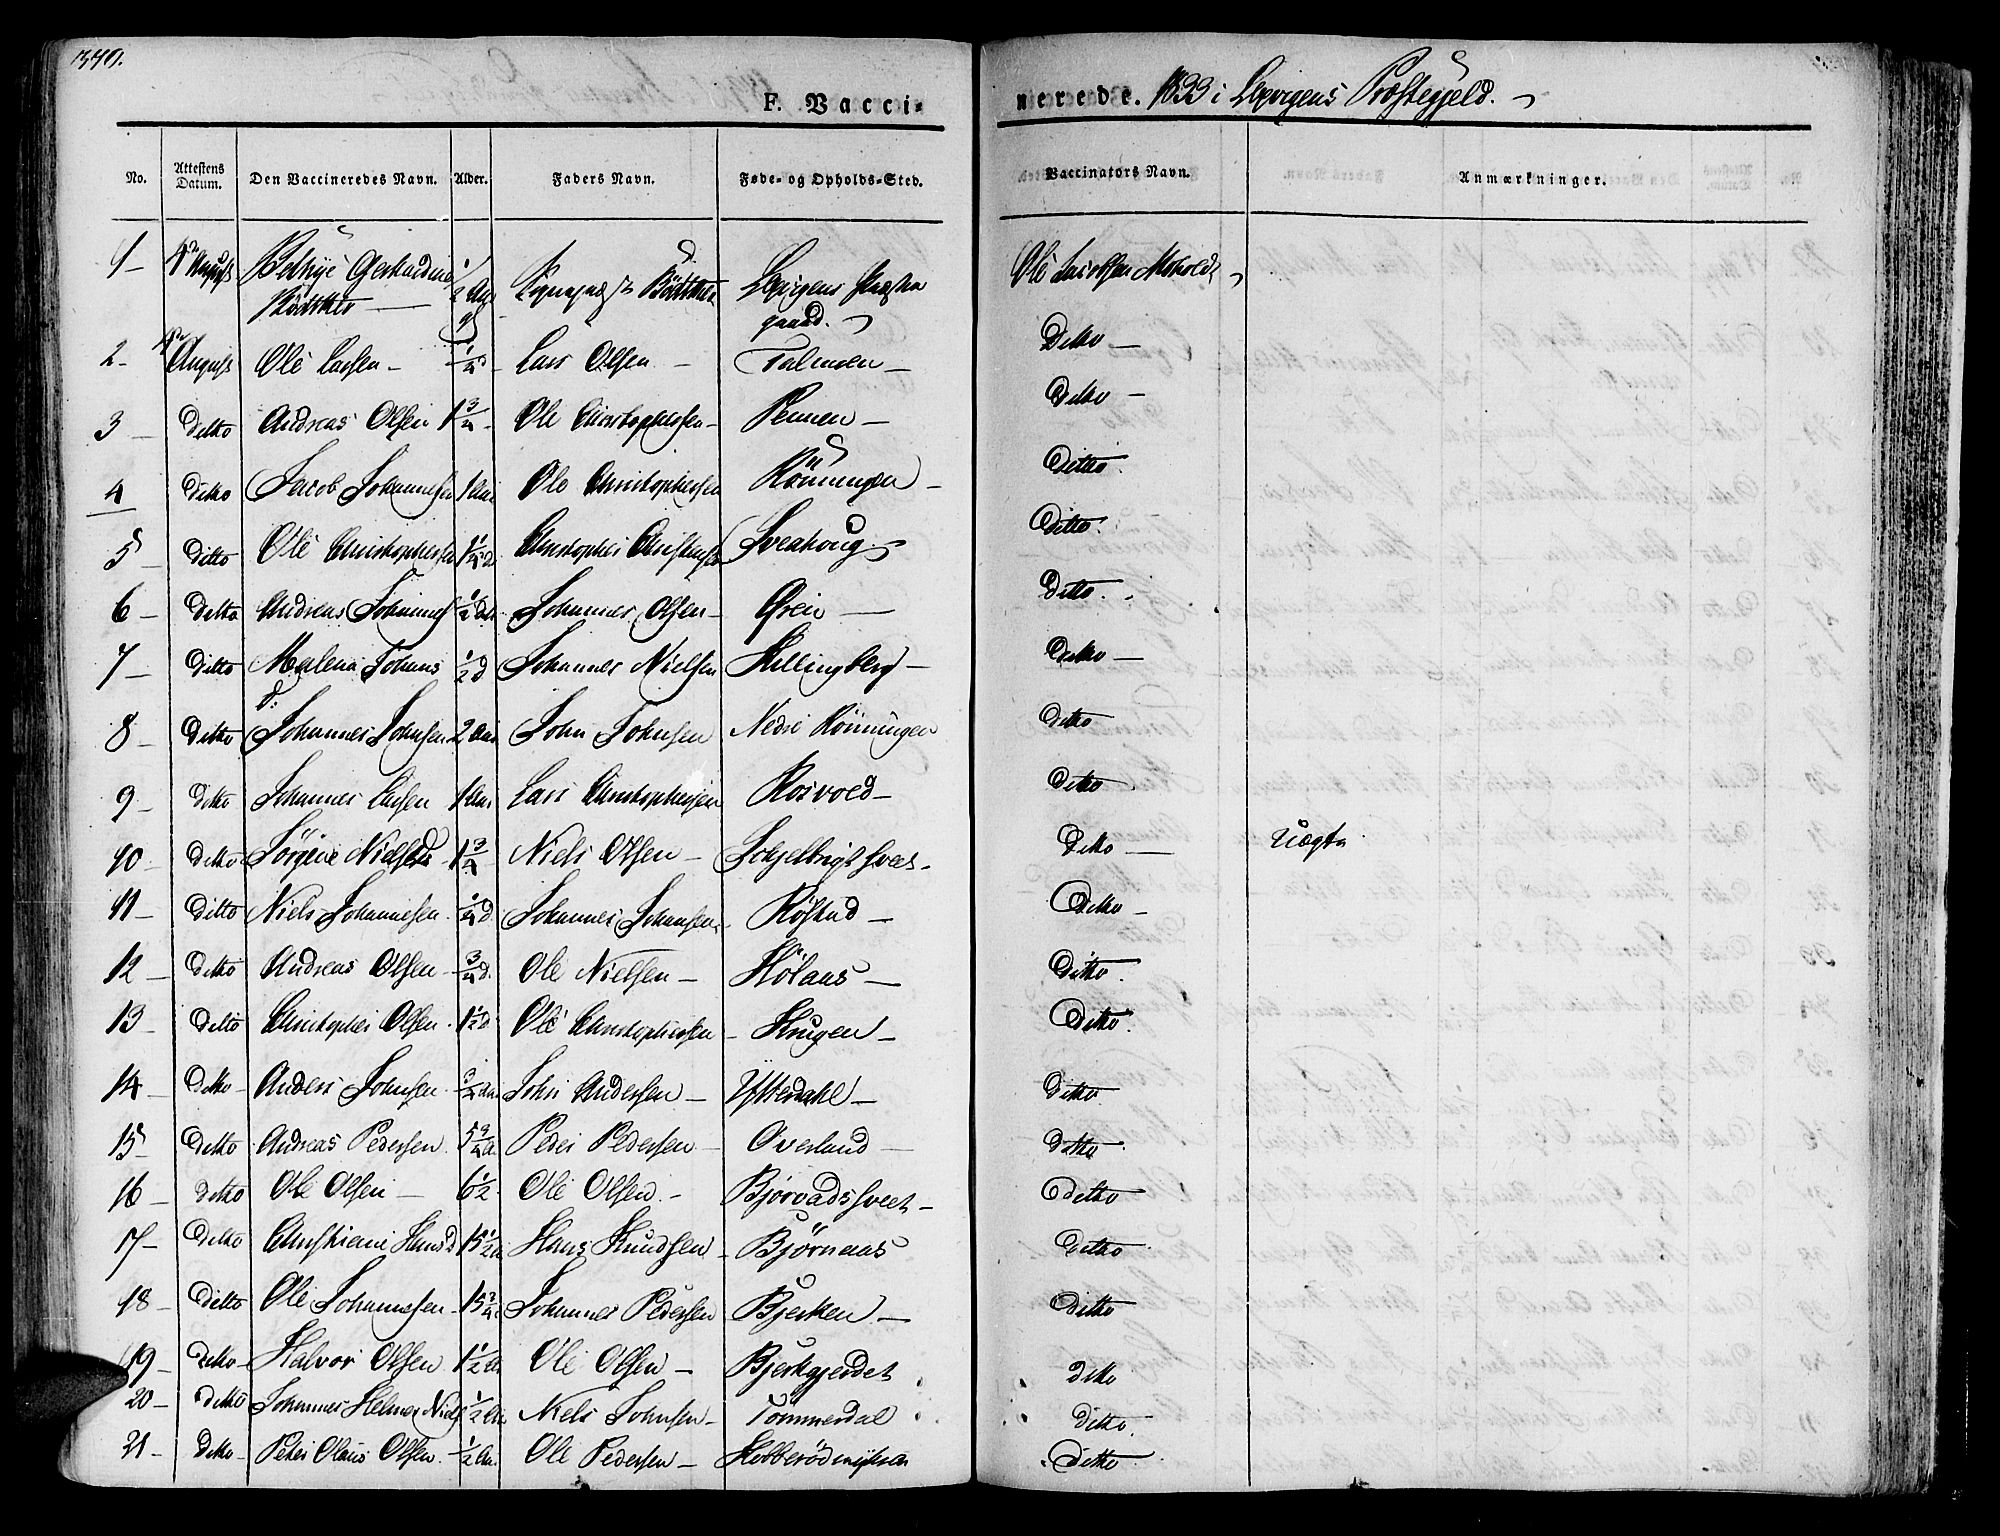 340.
F. Vacci- nerede. 1833 i Lexvigens Præstegjeld.
No. Attestens Datum. Den Vaccineredes Navn. Alder. Faders Navn. Føde- og Opholds-Sted. Vaccinators Navn. Anmærkninger.
1 - August Gerhardine Bödtker 1/2 Aar Bödtker Lexvigens Præste gaard. Ole
2 - August Ole Larsen - 1/4 Lars Olsen - Ditto -
3 - Ditto Andreas Olsen 1 3/4 - Ole Christophersen - - Ditto -
4 Ditto Jacob Johannesen 1 Aar Ole Christophersen Rönningen - Ditto.
5 Ditto Ole Christophersen 1 1/4 Christopher Sveahoug - Ditto.
6 - Ditto Andreas 1/2 Johannes Olsen - Grein - Ditto.
7 - Ditto Malena Johans d: 1/2 d Johannes Nielsen Killingberg - Ditto -
8 - Ditto Johannes Johnsen 2 Aar John Johnsen Nedre Rönningen Ditto
9 - Ditto Johannes Larsen 1 Aar Lars Christophersen Rosvold - Ditto
10 - Ditto Jörgine 1 3/4 Niels Olsen - Ditto - Uægte
11 - Ditto Niels Johannesen 1/4 d. Johannes Johansen Röstad - Ditto -
12 - Ditto Andreas Olsen - 3/4 d. Ole Nielsen - Hölaas - Ditto.
13 - Ditto Christopher Olsen 1 1/2 d Ole Christophersen - Krugen - Ditto.
14 - Ditto - Anders Johnsen John Andersen - Ytterdahl - Ditto.
15 - Ditto Andreas Pedersen 5 3/4 Peder Pedersen - Overland - Ditto.
16 - Ditto Ole Olsen - 6 1/2 Ole Olsen - Ditto
17 - Ditto Christiane Hansd 15 1/2 Hans Knudsen - Björnaas Ditto
18 - Ditto Ole Johannesen 15 3/4 Johannes Pedersen Bjerken - Ditto
19 - Ditto - Halvor Olsen 1 1/2 Ole Olsen - Bjerkgjerdet Ditto
20 - Ditto Johannes Helmer Niels 1/2 Niels Johnsen - Tömmerdal Ditto.
21 - Ditto - Peter Olaus Olsen 1/2 Aar Ole Pedersen - Ditto